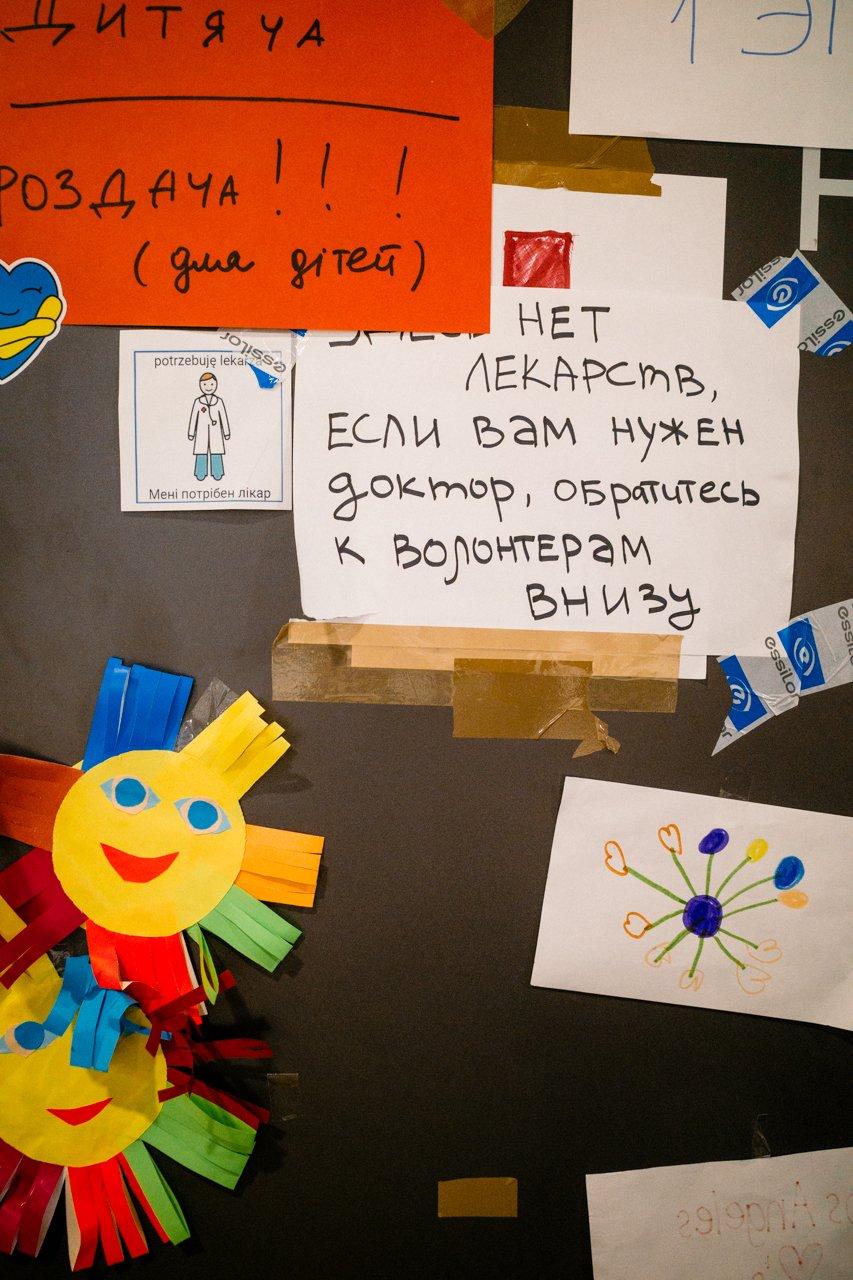 ДИТЯЧА
РОЗДАЧА!!!
(для дітей)
1 ЭТ
Н
НЕТ
ЛЕКАРСТВ,
ЕСЛИ ВАМ НУЖЕН
ДОКТОР, ОБРАТИТЕСЬ
К ВОЛОНТЕРАМ
ВНИЗУ
potrzebuję lekarza
Мені потрібен лікар
essilor
essilor
essilor
essilor
essilor
Angeles